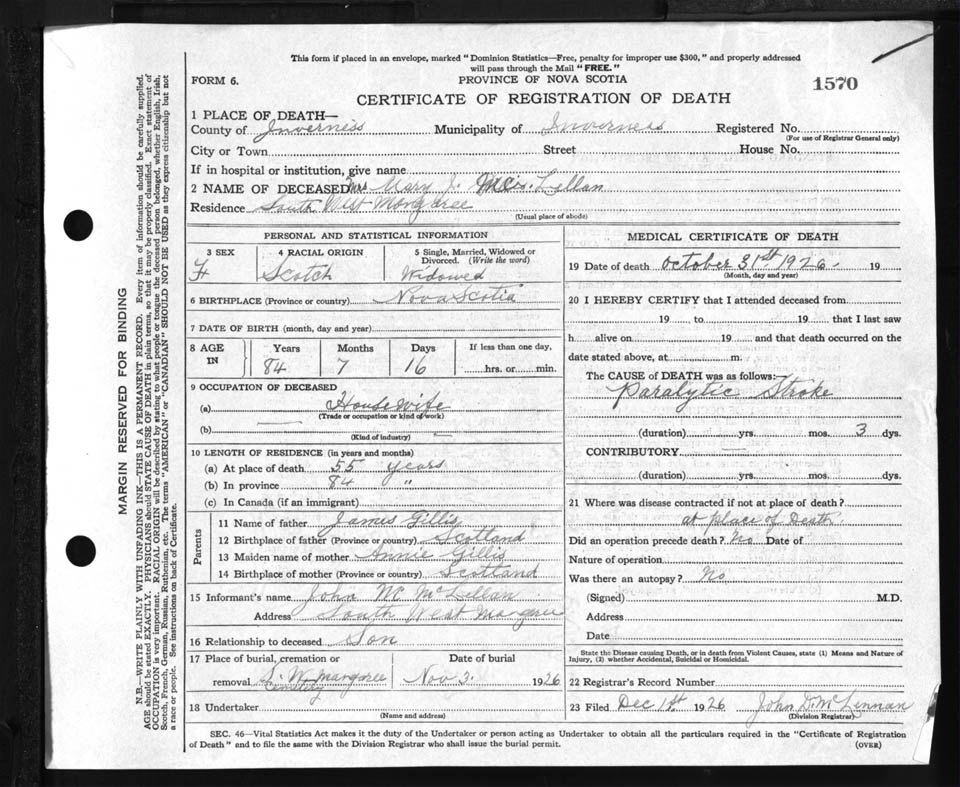 This form if placed in an envelope, marked "Dominion Statistics—Free, penalty for improper use $300," and properly addressed
will pass through the Mail "FREE."
FORM 6.
PROVINCE OF NOVA SCOTIA
1570
CERTIFICATE OF REGISTRATION OF DEATH
1 PLACE OF DEATH—
County of Inverness Municipality of Inverness Registered No.
(For use of Registrar General only)
City or Town Street House No.
If in hospital or institution, give name
2 NAME OF DECEASED Mrs Mary J. Lellan
Residence South West Margaree
(Usual place of abode)
PERSONAL AND STATISTICAL INFORMATION
3 SEX 4 RACIAL ORIGIN 5 Single, Married, Widowed or
Divorced. (Write the word)
F Scotch Widowed
6 BIRTHPLACE (Province or country) Nova Scotia
7 DATE OF BIRTH (month, day and year)
8 AGE IN Years Months Days If less than one day,
84 7 16 hrs. or min.
9 OCCUPATION OF DECEASED
(a) House Wife
(Trade or occupation or kind of work)
(b) —
(Kind of industry)
10 LENGTH OF RESIDENCE (in years and months)
(a) At place of death 55 years
(b) In province 84 "
(c) In Canada (if an immigrant)
Parents
11 Name of father James Gillis
12 Birthplace of father (Province or country) Scotland
13 Maiden name of mother Annie Gillis
14 Birthplace of mother (Province or country) Scotland
15 Informant's name John Mc McLellan
Address South West Margaree
16 Relationship to deceased Son
17 Place of burial, cremation or Date of burial
removal S. W. Margaree Cemetery Nov 3. 1926
18 Undertaker
(Name and address)
MEDICAL CERTIFICATE OF DEATH
19 Date of death October 31st 1926 19
(Month, day and year)
20 I HEREBY CERTIFY that I attended deceased from
19 to 19 that I last saw
h alive on 19 and that death occurred on the
date stated above, at m.
The CAUSE of DEATH was as follows:
Paralytic Stroke
(duration) yrs. mos. 3 dys.
CONTRIBUTORY
(duration) yrs. mos. dys.
21 Where was disease contracted if not at place of death?
at place of Death
Did an operation precede death? No Date of
Nature of operation
Was there an autopsy? No
(Signed) M.D.
Address
Date
State the Disease causing Death, or in death from Violent Causes, state (1) Means and Nature of
Injury, (2) whether Accidental, Suicidal or Homicidal.
22 Registrar's Record Number
23 Filed Dec 1st 1926 John D. McLennan
(Division Registrar)
SEC. 46—Vital Statistics Act makes it the duty of the Undertaker or person acting as Undertaker to obtain all the particulars required in the "Certificate of Registration
of Death" and to file the same with the Division Registrar who shall issue the burial permit.
(OVER)
MARGIN RESERVED FOR BINDING
N.B.—WRITE PLAINLY WITH UNFADING INK—THIS IS A PERMANENT RECORD. Every item of information should be carefully supplied.
AGE should be stated EXACTLY. PHYSICIANS should STATE CAUSE OF DEATH in plain terms, so that it may be properly classified. Exact statement of
OCCUPATION is very important. RACIAL ORIGIN will be described by stating to what people or tongue the deceased person belonged, whether English, Irish,
Scotch, French, German, Russian, Ruthenian, etc. The terms "AMERICAN" or "CANADIAN" SHOULD NOT BE USED as they express citizenship but not
a race or people. See instructions on back of Certificate.